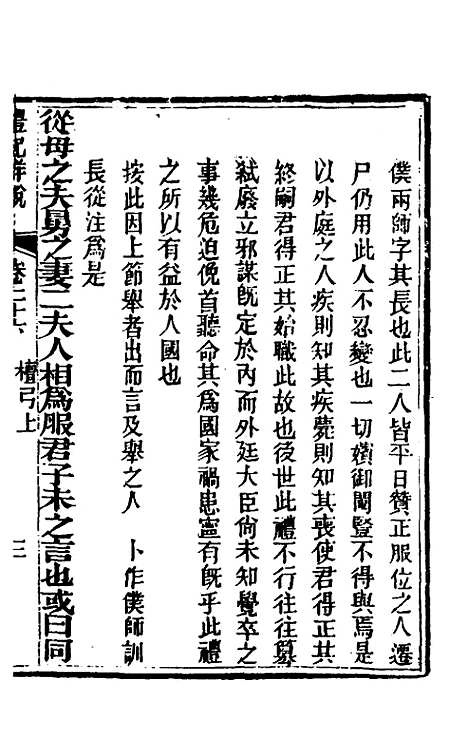 僕兩師字其長也此二人皆平日贊正服位之人遷
尸仍用此人不忍變也一切嬪御閽豎不得與焉是
以外庭之人疾則知其疾薨則知其喪使君得正其
終嗣君得正其始職此故也後世此禮不行往往篡
弒廢立邪謀既定於內而外廷大臣尙未知覺卒之
事幾危迫俛首聽命其爲國家禍患寧有旣乎此禮
之所以有益於人國也
按此因上節舉者出而言及舉之人　卜作僕師訓
長從注爲是
從母之夫舅之妻二夫人相爲服君子未之言也或曰同
禮記詳說　卷二十六　檀弓上　三